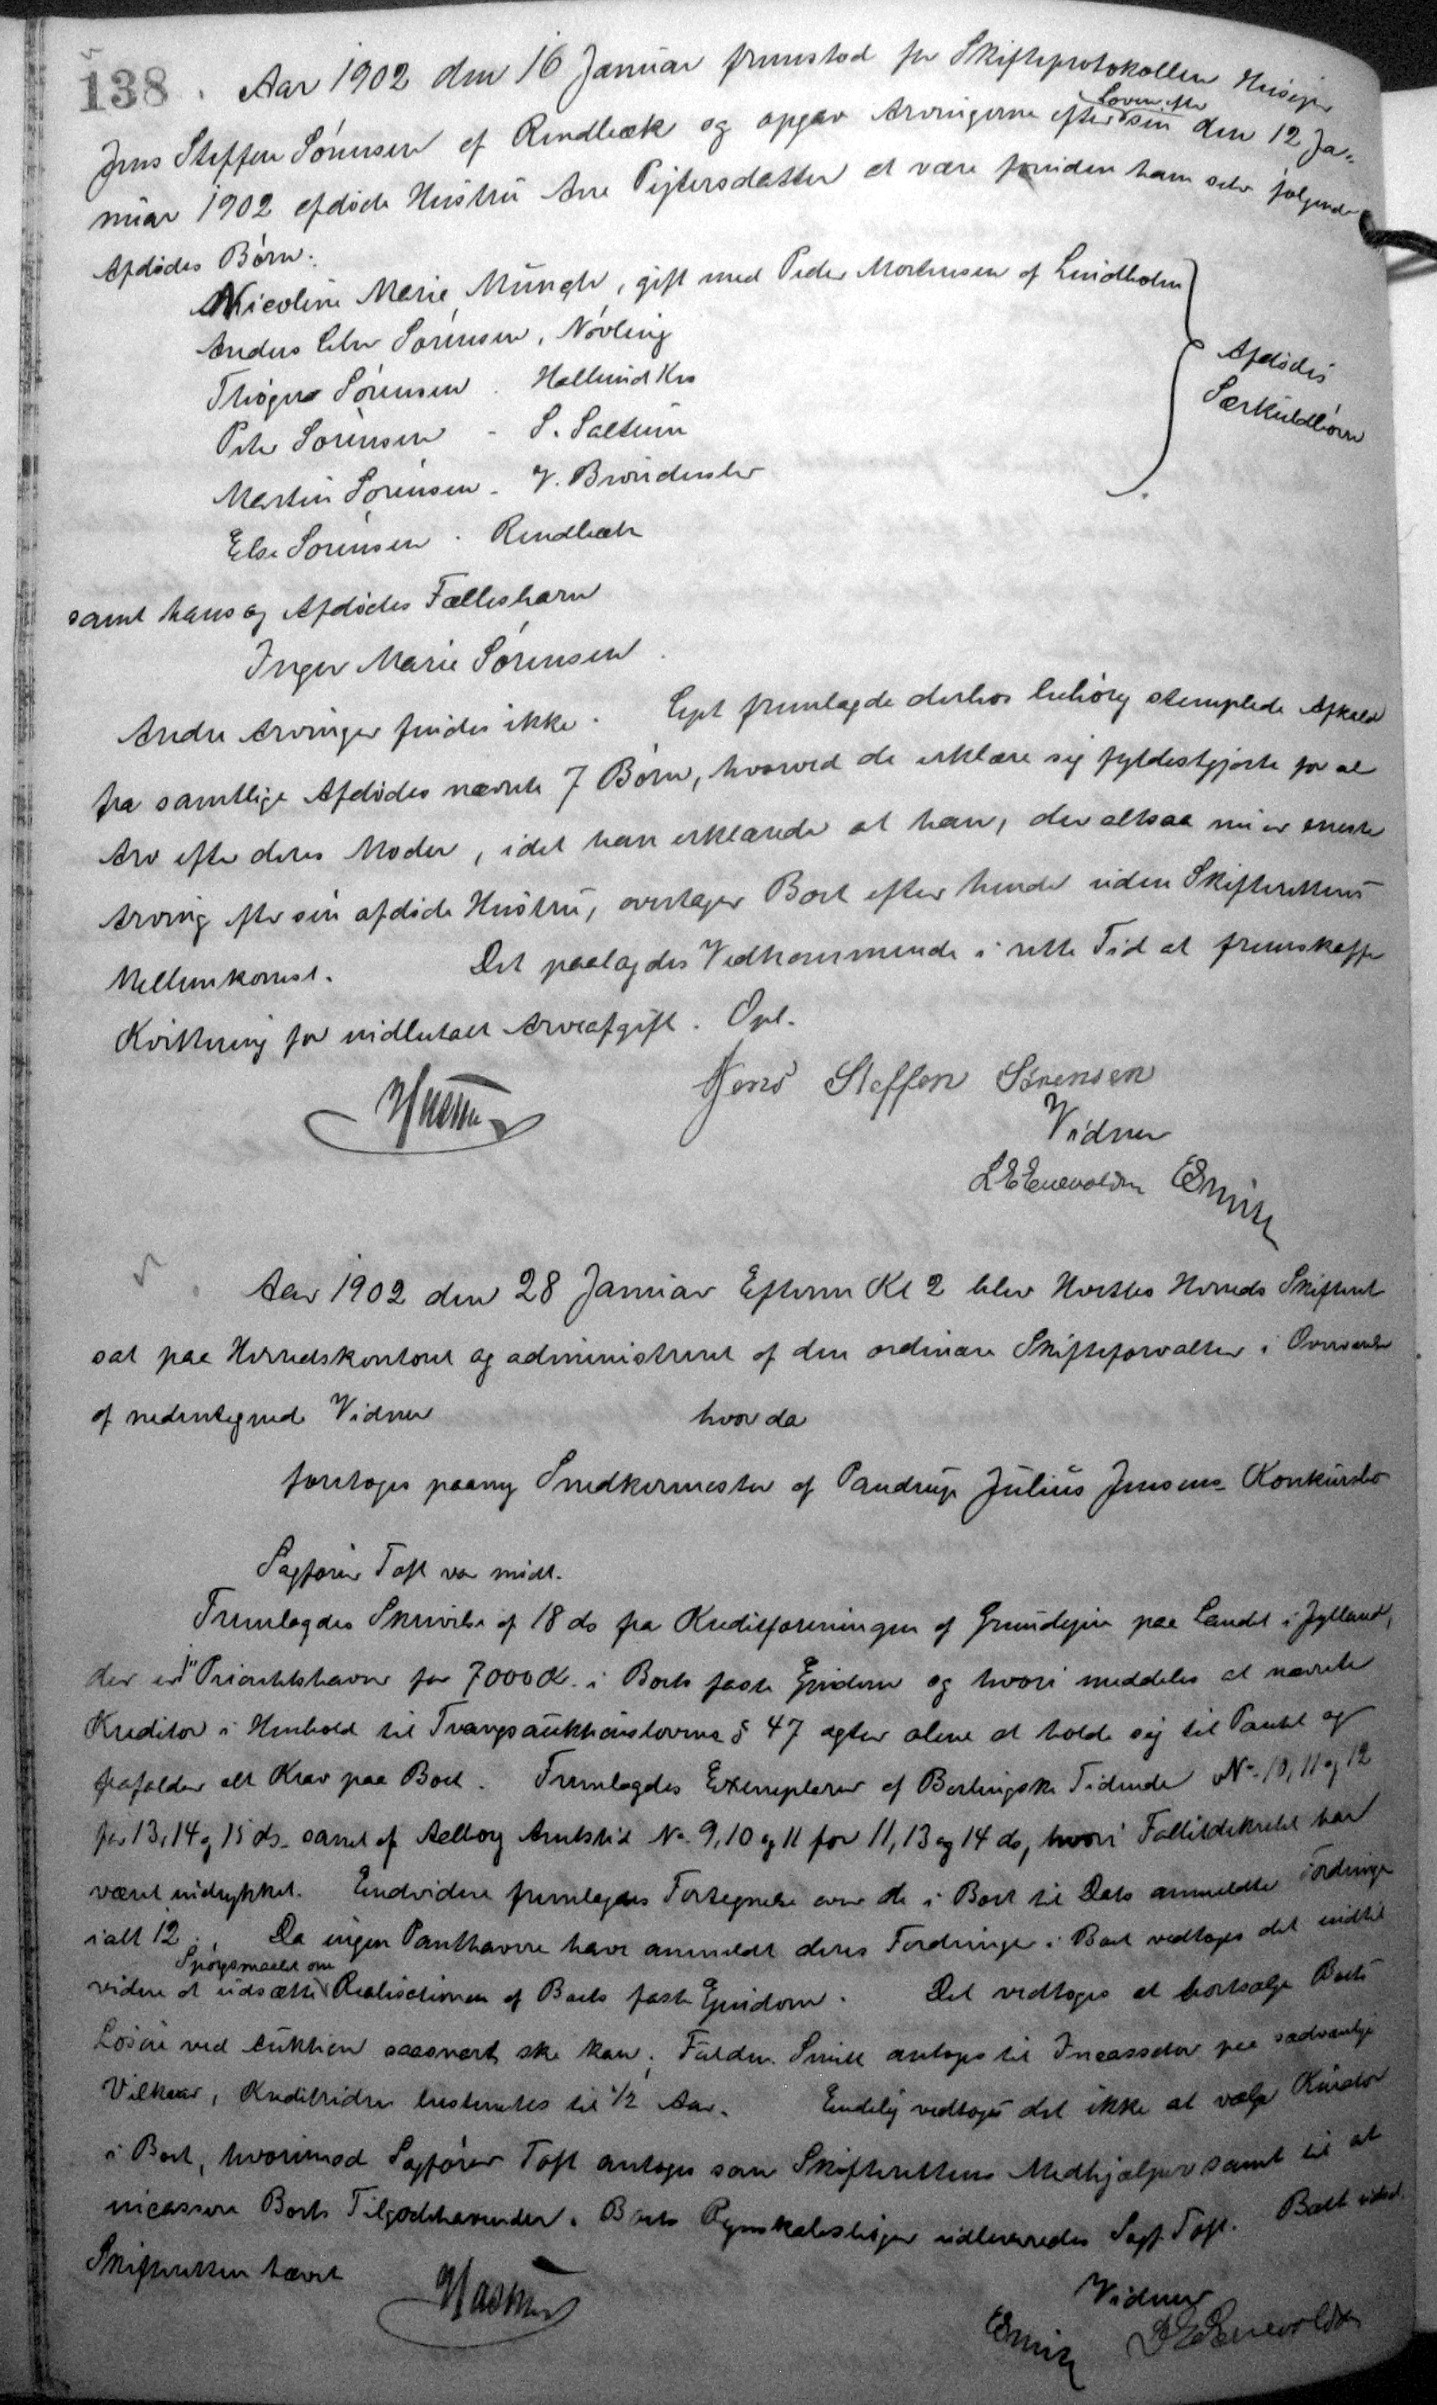 138. Aar 1902 den 16 Januar fremstod for Skifteprotokollen Husejer
Jens Steffen Sørensen af Rendbæk og opgav Arvingerne efter Loven efter sin den 12 Ja-
nuar 1902 afdøde Hustru Ane Pejtersdatter at være foruden ham selv følgende
Afdødes Børn:
Nicoline Marie Munch, gift med Peder Mortensen af Lindholm
Anders Chr Sørensen, Nøvling
Thøger Sørensen. Hallund Kro
Peter Sørensen - S. Saltum
Martin Sørensen - V. Brønderslev
Else Sørensen. Rendbæk
Afdødes
Særkuldbørn
samt hans og Afdødes Fællesbarn
Inger Marie Sørensen.
Andre Arvinger findes ikke. Cpt fremlagde derhos behørig stemplede Afkald
fra samtlige Afdødes nævnte 7 Børn, hvorved de erklære sig fyldestgjorte for al
Arv efter deres Moder, idet han erklærede at han, der altsaa nu er eneste
Arving efter sin afdøde Hustru, overtager Boet efter hende uden Skifterettens
Mellemkomst. Det paalagdes Vedkommende i rette Tid at fremskaffe
Kvittering for indbetalt Arveafgift. Opl.
Jens Steffen Sørensen
Vidner
L E Enevoldsen
Aar 1902 den 28 Januar Efterm Kl 2 blev Hvetbo Herreds Skifteret
sat paa Herredskontoret og administreret af den ordinære Skifteforvalter i Overværelse
af nedentegnede Vidner hvor da
foretoges paany Snedkermester af Pandrup Julius Jensens Konkursbo
Sagfører Toft var mødt.
Fremlagdes Skrivelse af 18 ds fra Kreditforeningen af Grundejere paa Landet i Jylland,
der er 1ste Prioritetshaver for 7000 K. i Boets faste Ejendom og hvori meddeles at nævnte
Kreditor i Henhold til Tvangsauktionslovens § 47 agter alene at holde sig til Pantet og
frafalder alt Krav paa Boet. Fremlagdes Exemplarer af Berlingske Tidende No. 10, 11 og 12
for 13, 14 og 15 ds. samt af Aalborg Amtstid No. 9, 10 og 11 for 11, 13 og 14 ds, hvori Fallitdekretet har
været indrykket. Endvidere fremlagdes Fortegnelse over de i Boet til Dato anmeldte Fordringer
ialt 12. Da ingen Panthavere have anmeldt deres Fordringer i Boet vedtoges det indtil
videre at udsætte Spørgsmaalet om Realisationen af Boets faste Ejendom. Det vedtoges at bortsælge Boets
Løsøre ved Auktion saasnart ske kan. Fuldm. Smith antoges til Incassator paa sædvanlige
Vilkaar, Kredittiden bestemtes til 1/2 Aar. Endelig vedtoges det ikke at vælge Kurator
i Boet, hvorimod Sagfører Toft antoges som Skifterettens Medhjælper samt til at
incassere Boets Tilgodehavender. Boets Regnskabsbøger udleveredes Sagf. Toft. Boet udsat.
Skifteretten hævet
Vidner
L E Enevoldsen